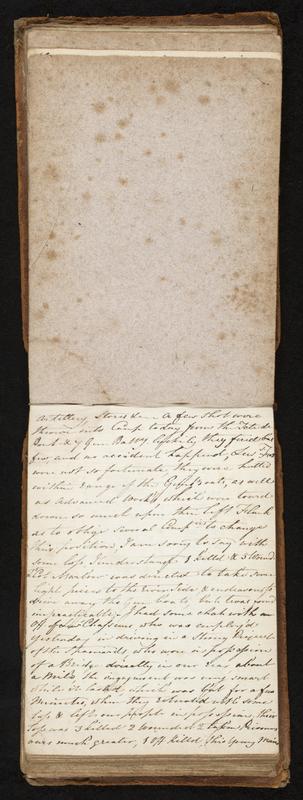 Artillery Stores &c. A few shot were
thrown into Camp today from the Tete de
Pont & 7 Gun Batty luckily they fired but
few, and no accident happened, Lew For
were not so fortunate, they were hutted
within range of the Gun Boats, as well
as Advanced Works which were lowd
down so much upon their left Flank
as to oblige several Camps to change
their position, I am sorry to say with
some loss I understand 1 killed & 5 Wound
Marlow was directed to take some
light pieces to the River Side & endeavour to
drive away the Boats, but it was found
impracticable, I had some chat with an
Off of Chasseurs who was employ'd
yesterday in driving in a Strong Picquet
of the Enemies who were in possession
of a Bridge directly in our rear about
a Mile, the engagement was very smart
while it lasted, which was but for a few
Minutes, when they retreated with some
loss & left our people in possession, their
loss was 3 killed 2 wounded & taken Prisoners
ours much greater, 1 Off killed, this young Man